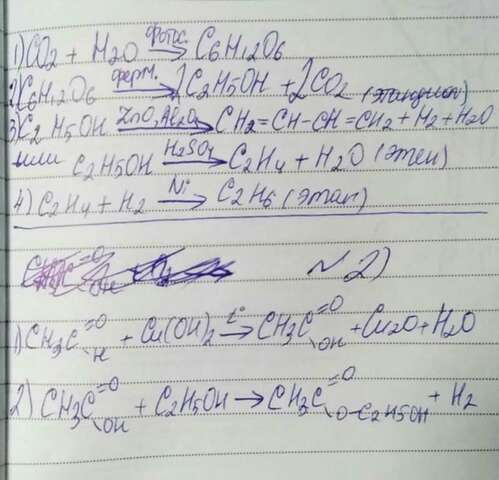 1) CO2 + H2O фотос. → C6H12O6
2) C6H12O6 ферм. → 2C2H5OH + 2CO2
3) C2H5OH ZnO, Al2O3 → CH2=CH-CH=CH2 + H2 + H2O
или C2H5OH H2SO4 → C2H4 + H2O (этен)
4) C2H4 + H2 Ni → C2H6 (этан)
№ 2)
1) CH3C =O \H + Cu(OH)2 t° → CH3C =O \OH + Cu2O + H2O
2) CH3C =O \OH + C2H5OH → CH3C =O \O-C2H5OH + H2